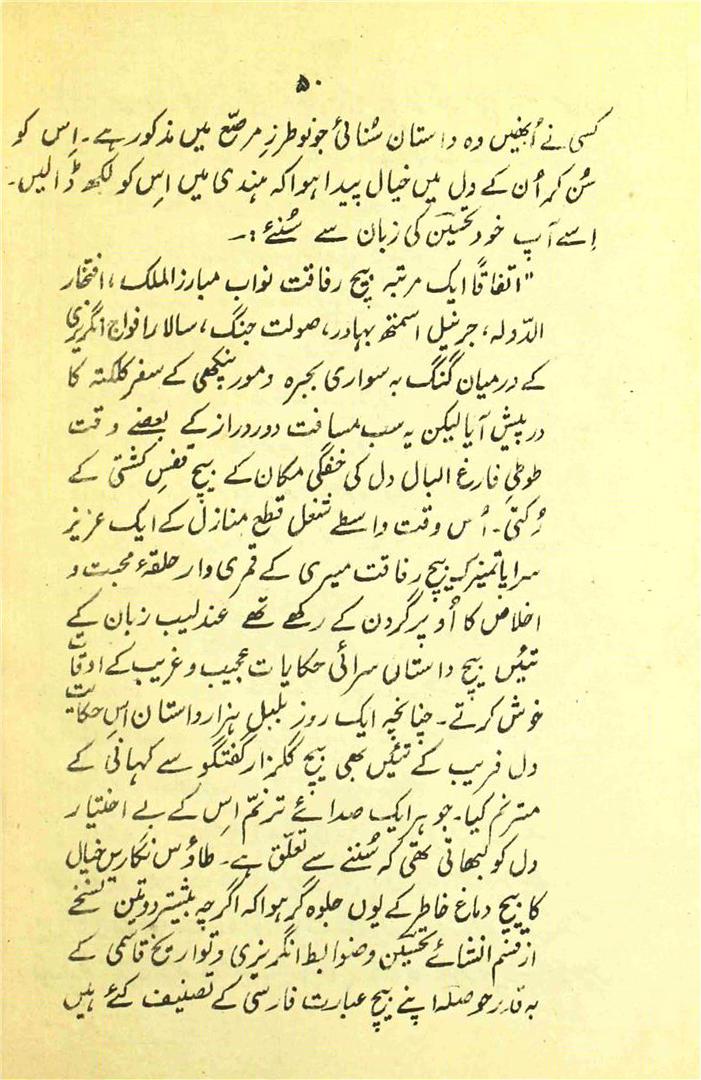 ۵۰
کسی نے اُنھیں وہ داستان سُنائی جو نو طرزِ مرصّع میں مذکور ہے۔ اِس کو
سُن کر اُن کے دل میں خیال پیدا ہوا کہ ہندی میں اِس کو لکھ ڈالیں۔
اِسے آپ خود تحسینؔ کی زبان سے سُنئے :۔
"اتفاقاً ایک مرتبہ بیچ رفاقت نواب مبارزالملک، افتخار
الدّولہ، جرنیل اسمتھ بہادر، صولت جنگ، سالار افواج انگریزی
کے درمیان گنگ بہ سواری بجرہ و مورپنکھی کے سفر کلکتہ کا
درپیش آیا لیکن بہ سبب مسافت دور دراز کے بعضے وقت
طوطیِ فارغ البال دل کی خفگی مکان کے بیچ قفسِ کشتی کے
رُکتی۔ اُس وقت واسطے شغل قطع منازل کے ایک عزیز
سراپا تمیز کہ بیچ رفاقت میری کے قمری وار حلقۂ محبت و
اخلاص کا اُوپر گردن کے رکھے تھے عندلیب زبان کے
تئیں بیچ داستاں سرائی حکایات عجیب و غریب کے اوقات
خوش کرتے۔ چنانچہ ایک روز بلبل ہزار داستان اس حکایت
دل فریب کے تئیں بھی بیچ گلزار گفتگو سے کہانی کے
مترنم کیا۔ جو ہر ایک صدائے ترنّم اِس کے بے اختیار
دل کو لبھاتی تھی کہ سُننے سے تعلّق ہے۔ طاؤس نگاریں خیال
کا بیچ دماغ خاطر کے یوں جلوہ گر ہوا کہ اگرچہ پیشتر دو تین نسخے
از قسم انشائے تحسینؔ و ضوابط انگریزی و تواریخ قاسمی کے
بہ قدر حوصلہ اپنے بیچ عبارت فارسی کے تصنیف کئے ہیں